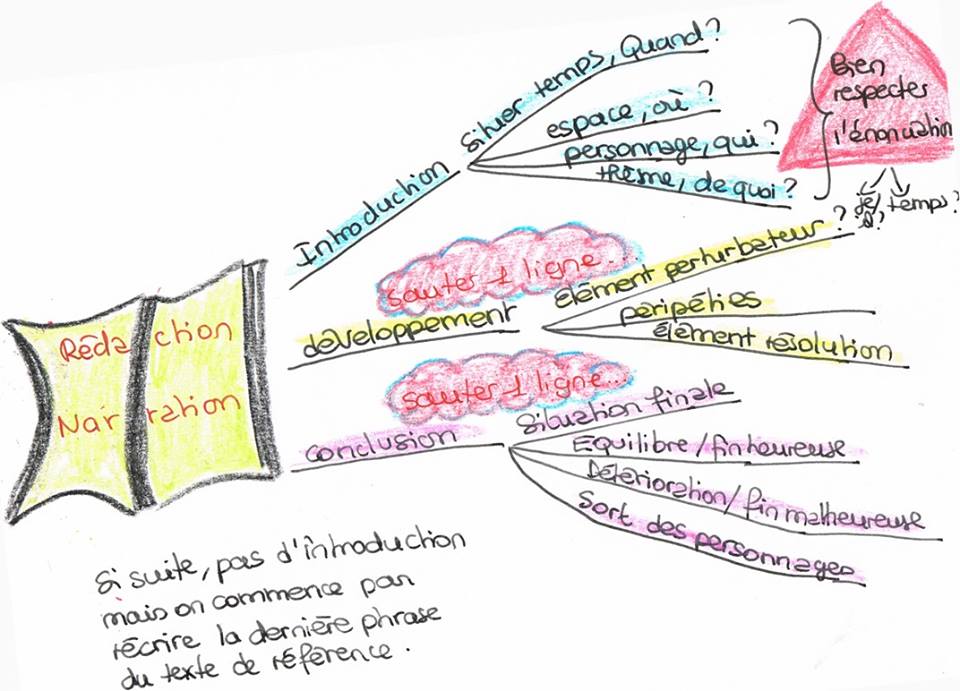 Rédaction
Narration
Introduction
Situer temps, Quand?
espace, où?
personnage, qui?
thème, de quoi?
Bien
respecter
l'énonciation
je/
temps?
sauter 1 ligne...
développement
élément perturbateur?
péripéties
élément résolution
sauter 1 ligne...
conclusion
situation finale
Equilibre/fin heureuse
Détérioration/fin malheureuse
Sort des personnages
Si suite, pas d'introduction
mais on commence par
récrire la dernière phrase
du texte de référence.